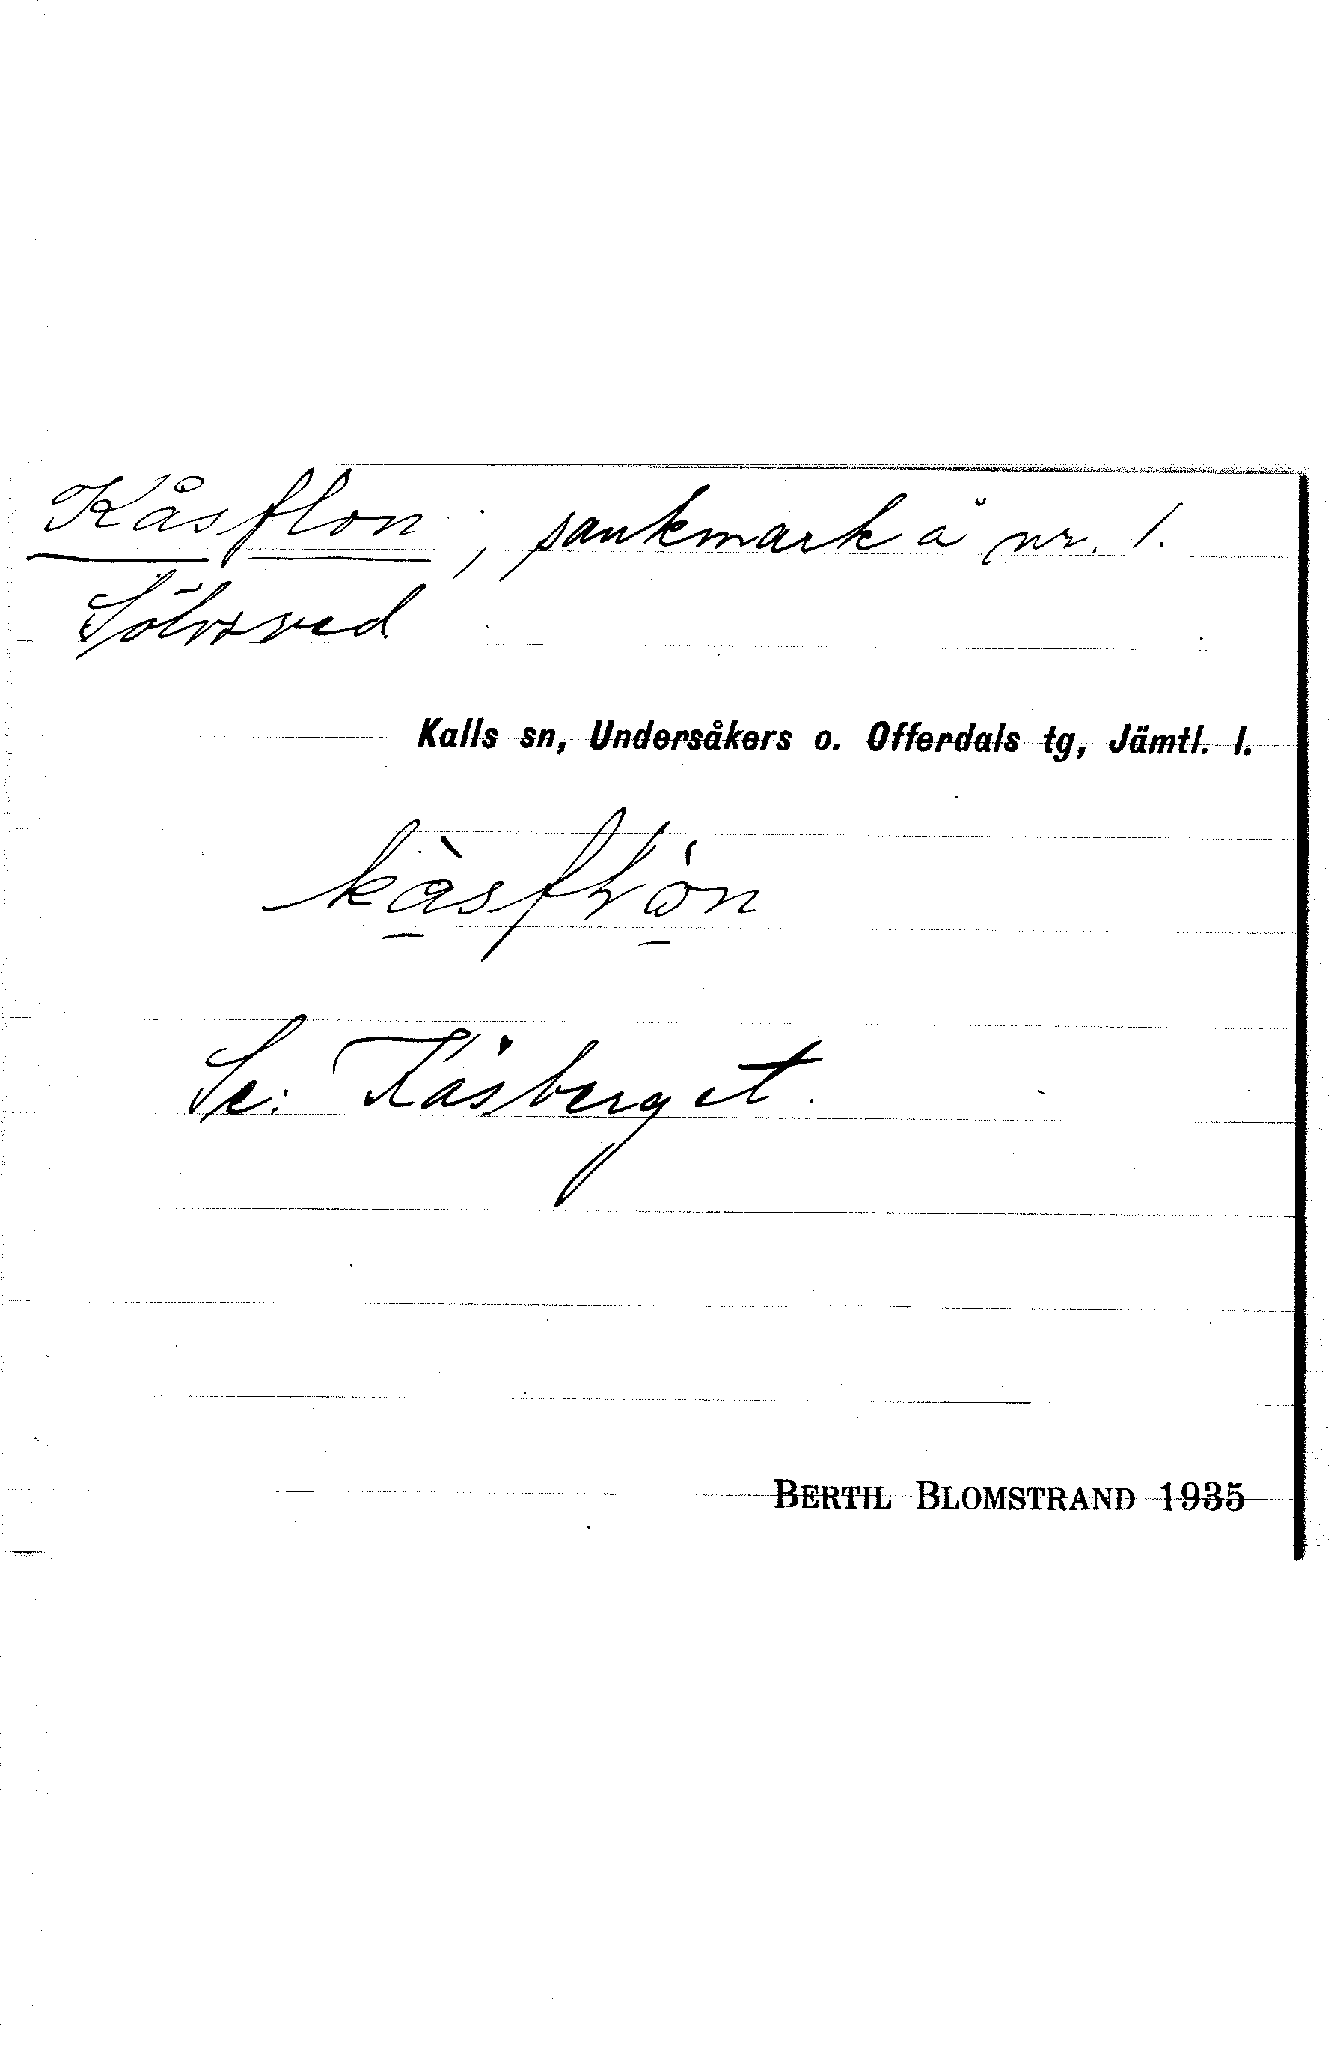 Kåsflon, sankmark å nr. 1.
Sölvsved
Kalls sn, Undersåkers o. Offerdals tg, Jämtl. l.
Se: Kåsberget.
BERTIL BLOMSTRAND 1935